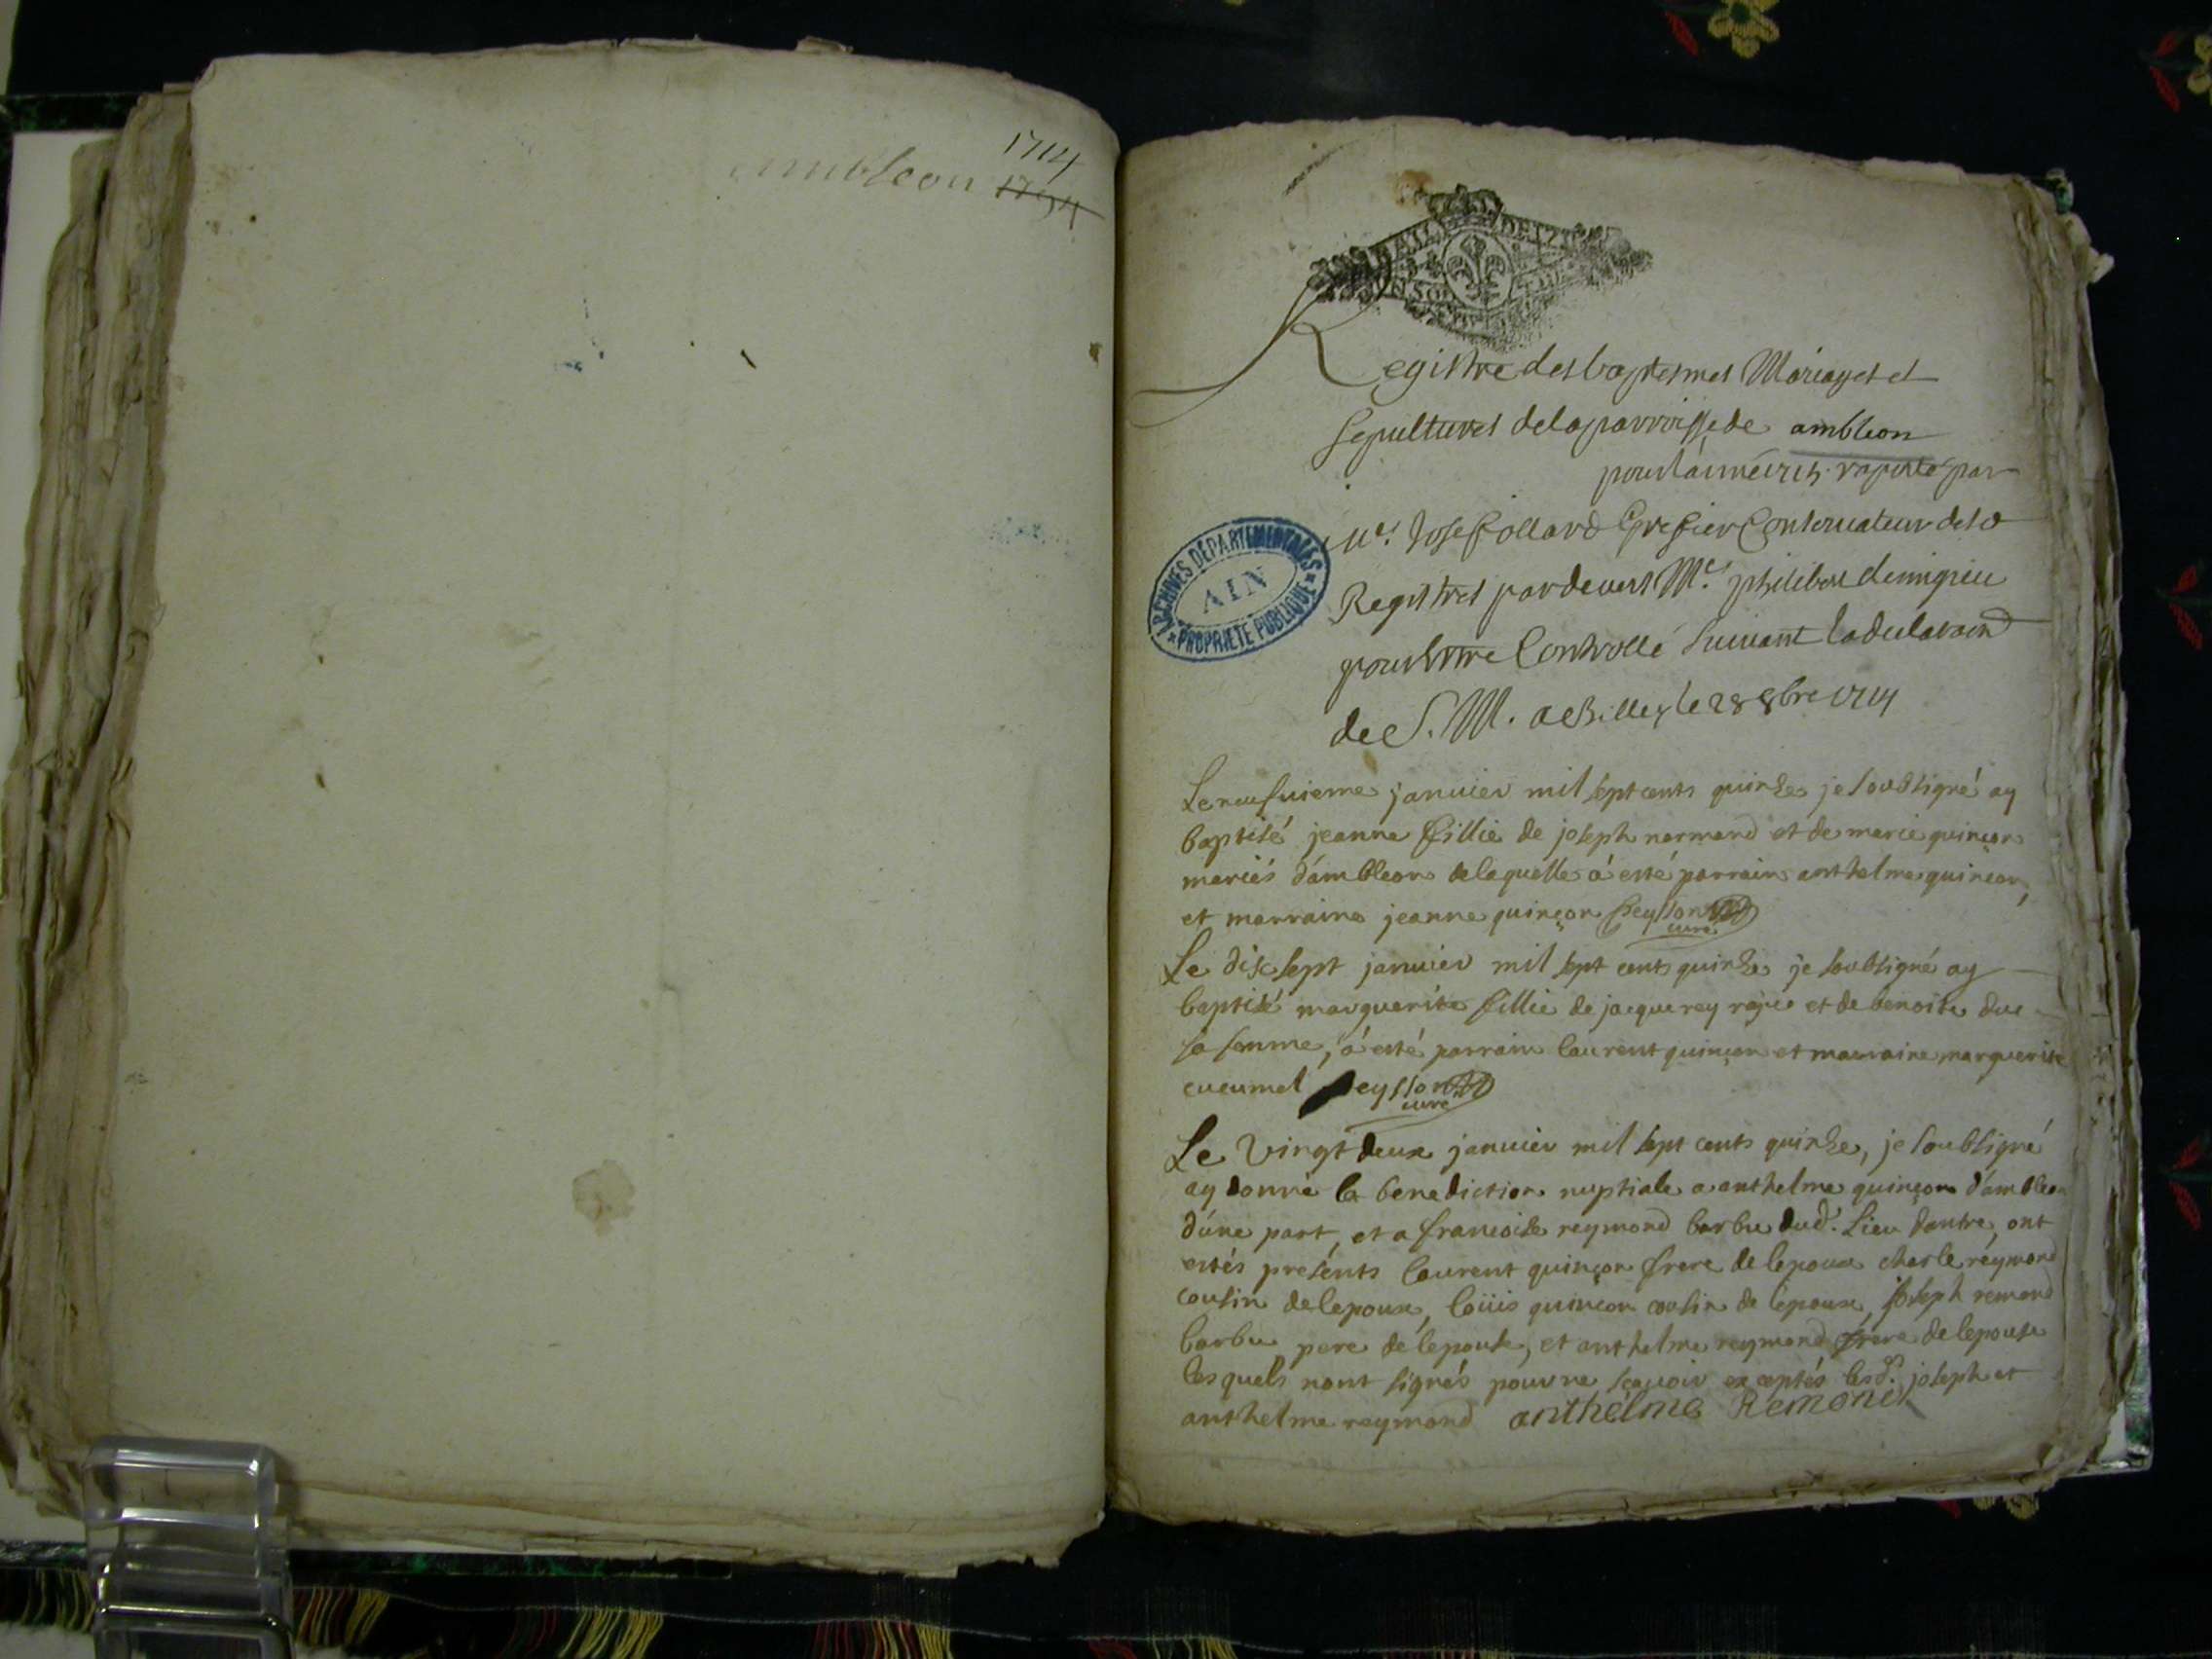 1714
ambleon 1794
Registre des baptesmes Mariages et
sepultures de la parroisse de ambleon
pour l'année 1715. raporté par
Mᵉ. Jose Collard Grefier Conservateur desd
Registres pardevers Mᵉ. philibert demigieu
pour estre Controllé suivant la declaraon
de S. M. a Belley le 28 8bre 1714
ARCHIVES DÉPARTEMENTALES
AIN
PROPRIÉTÉ PUBLIQUE
Le neufuieme janvier mil sept cents quinze je soubsigné ay
baptisé jeanne fillie de joseph normand et de marie quinçon
mariés d'ambleon de laquelle á esté parrain anthelme quinçon,
et marraine jeanne quinçon Peysson
curé
Le disc sept janvier mil sept cents quinze je soubsigné ay
baptisé marguerite fillie de jacque rey rojue et de benoite duc
sa femme, á esté parrain laurent quinçon et marraine marguerite
cucumel Peysson
curé
Le vingt deux janvier mil sept cents quinze, je soubsigné
ay donné la benediction nuptiale a anthelme quinçon d'ambleon
d'une part, et a francoise reymond barbu dud. Lieu dautre, ont
estés presénts laurent quinçon frere de lepoux charle reymond
cousin de lepoux, loüis quinçon cousin de lepoux, joseph remond
barbu pere de lepouse, et anthelme reymond frere de lepouse
lesquels nont signés pour ne sçavoir exceptés lesd. joseph et
anthelme reymond anthelme Remond